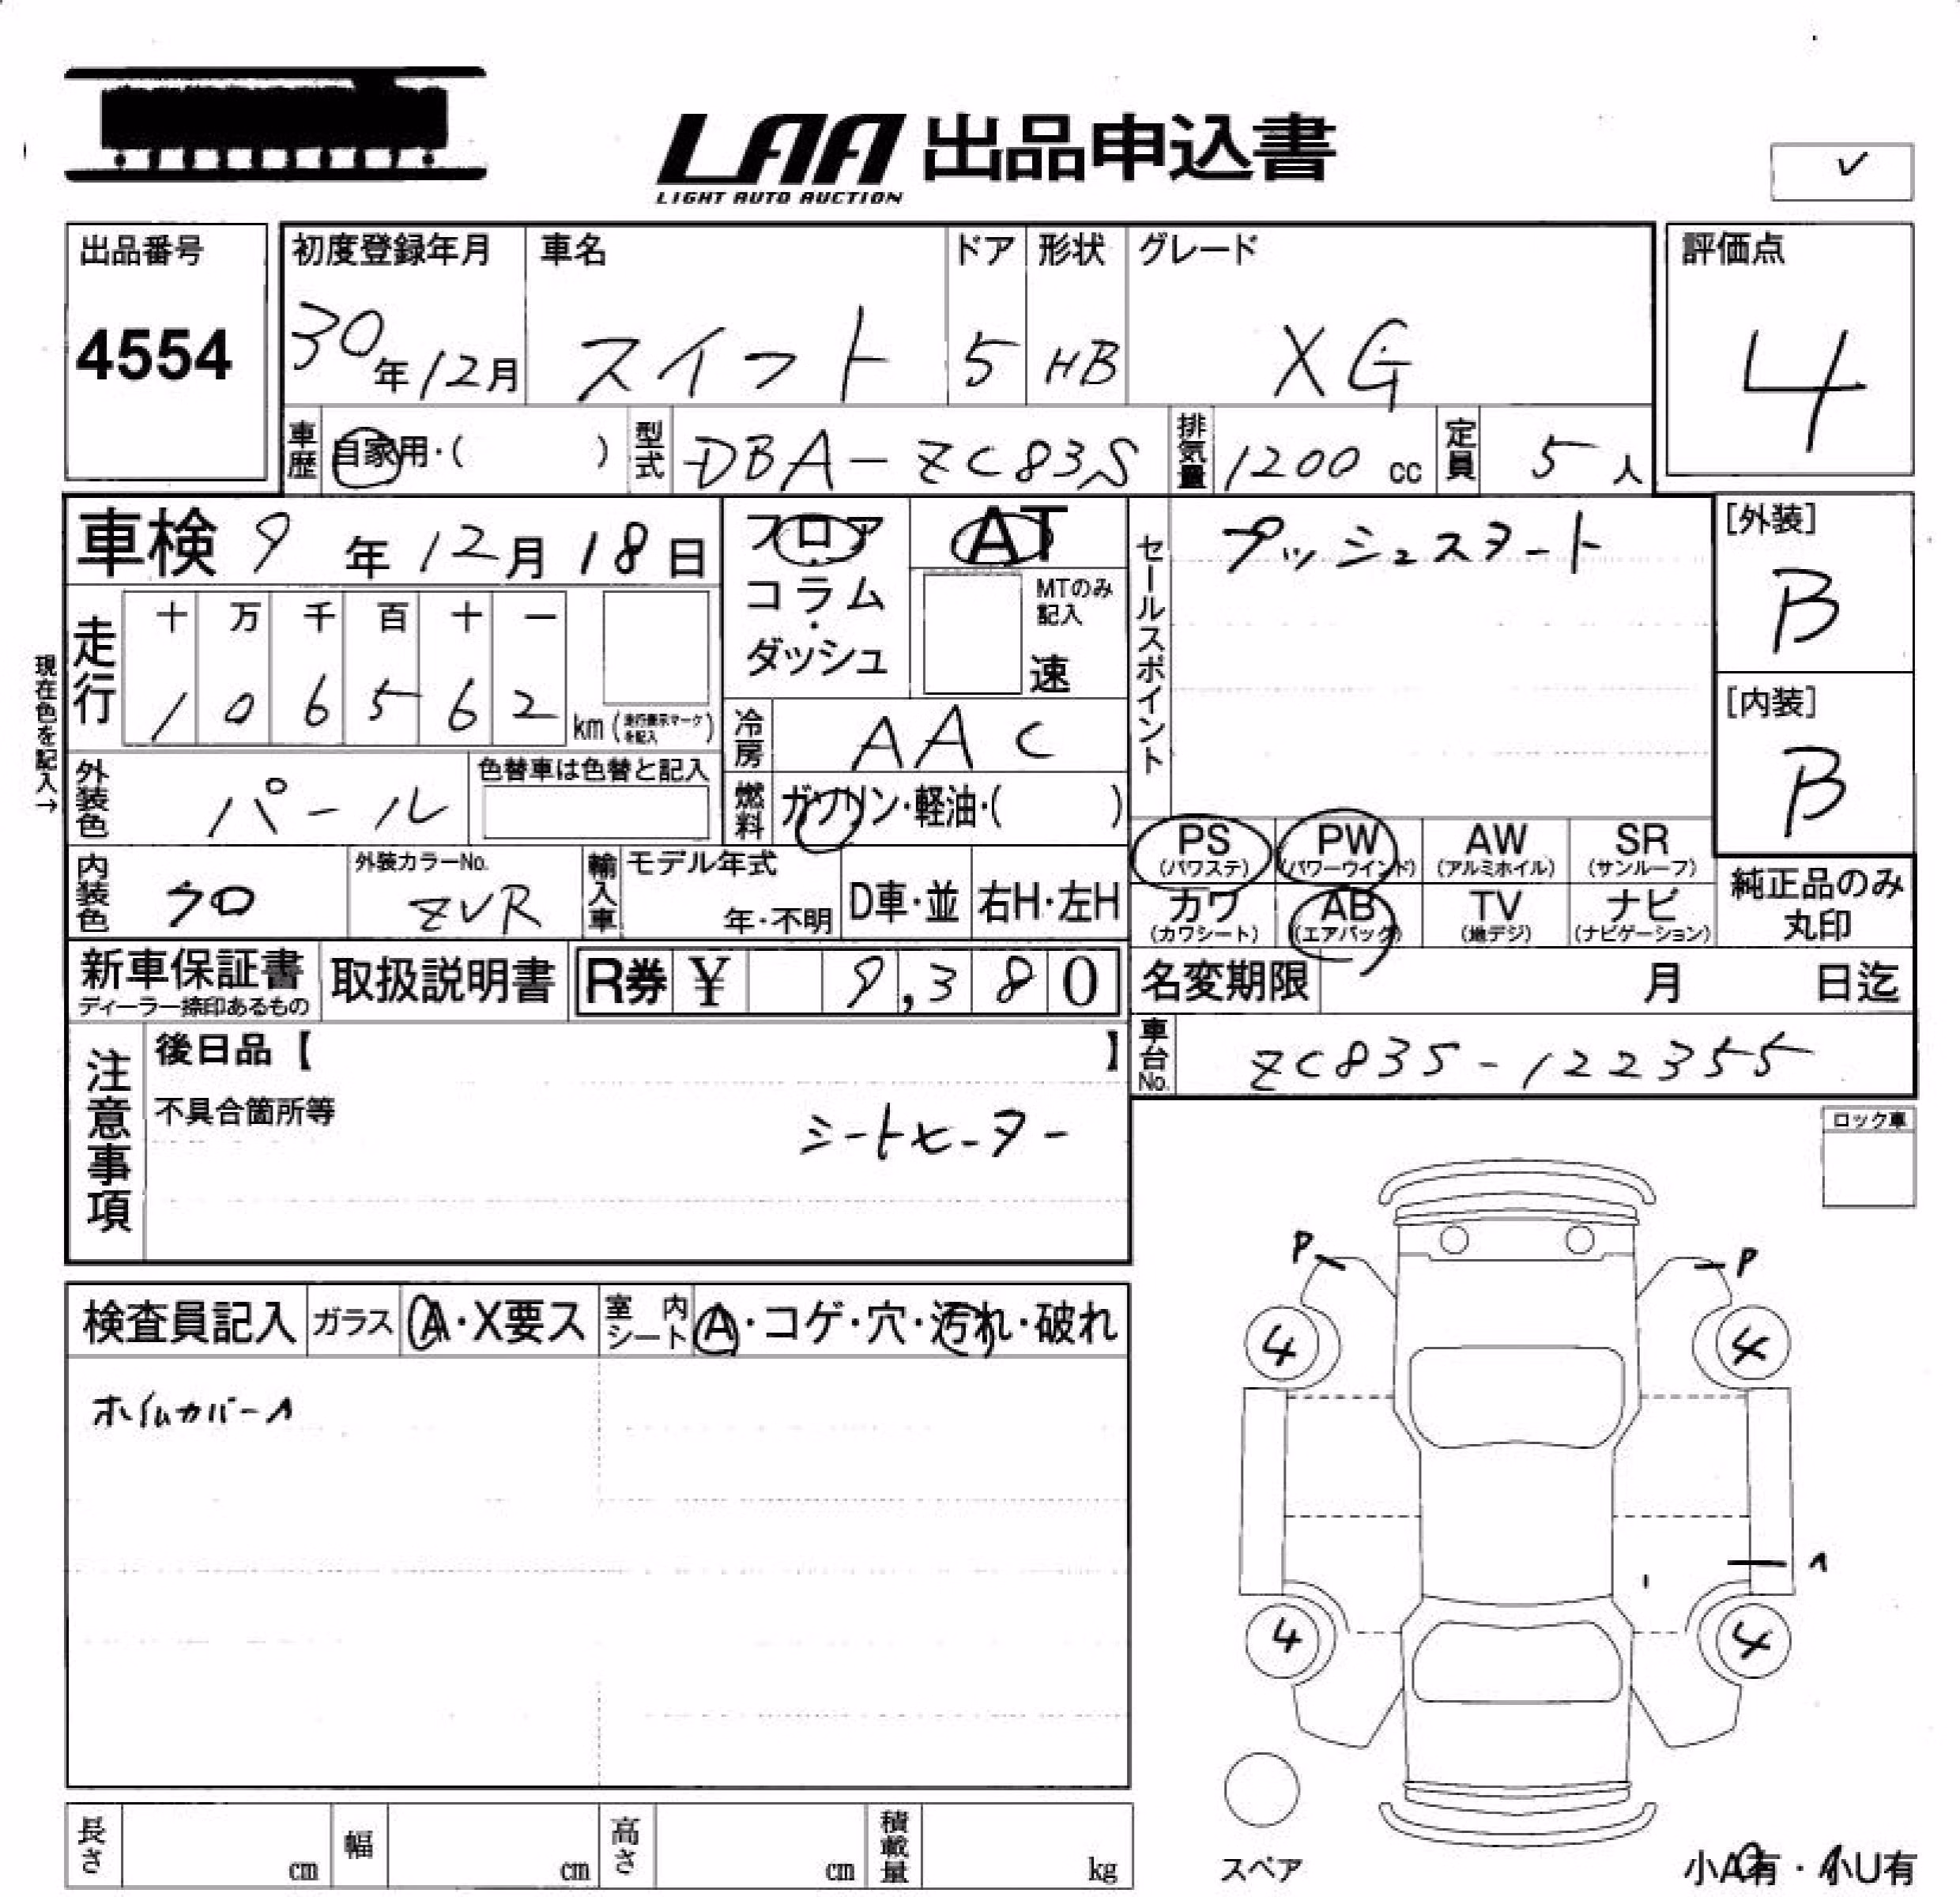 LAA 出品申込書
LIGHT AUTO AUCTION
✓
出品番号
4554
初度登録年月
30年12月
車名
スイフト
ドア
5
形状
HB
グレード
XG
評価点
4
車歴
自家用・( )
型式
DBA-ZC83S
排気量
1200 cc
定員
5 人
車検 9 年 12 月 18 日
フロア・コラム・ダッシュ
AT
MTのみ記入
速
セールスポイント
プッシュスタート
[外装]
B
[内装]
B
現在色を記入→
走行
十 万 千 百 十 一
1 0 6 5 6 2 km (走行表示マークを記入)
冷房
AAC
外装色
パール
色替車は色替と記入
燃料
ガソリン・軽油・( )
PS (パワステ)
PW (パワーウインド)
AW (アルミホイル)
SR (サンルーフ)
カワ (カワシート)
AB (エアバック)
TV (地デジ)
ナビ (ナビゲーション)
純正品のみ丸印
内装色
クロ
外装カラーNo.
ZVR
輸入車
モデル年式
年・不明
D車・並
右H・左H
新車保証書
ディーラー捺印あるもの
取扱説明書
R券 ¥ 9,380
名変期限 月 日迄
車台No.
ZC83S-122355
注意事項
後日品【 】
不具合箇所等
シートヒーター
ロック車
検査員記入
ガラス
A・X要ス
室内シート
A・コゲ・穴・汚れ・破れ
ホイルカバーA
P
P
4
4
A
4
4
スペア
長さ cm
幅 cm
高さ cm
積載量 kg
小A有・小U有